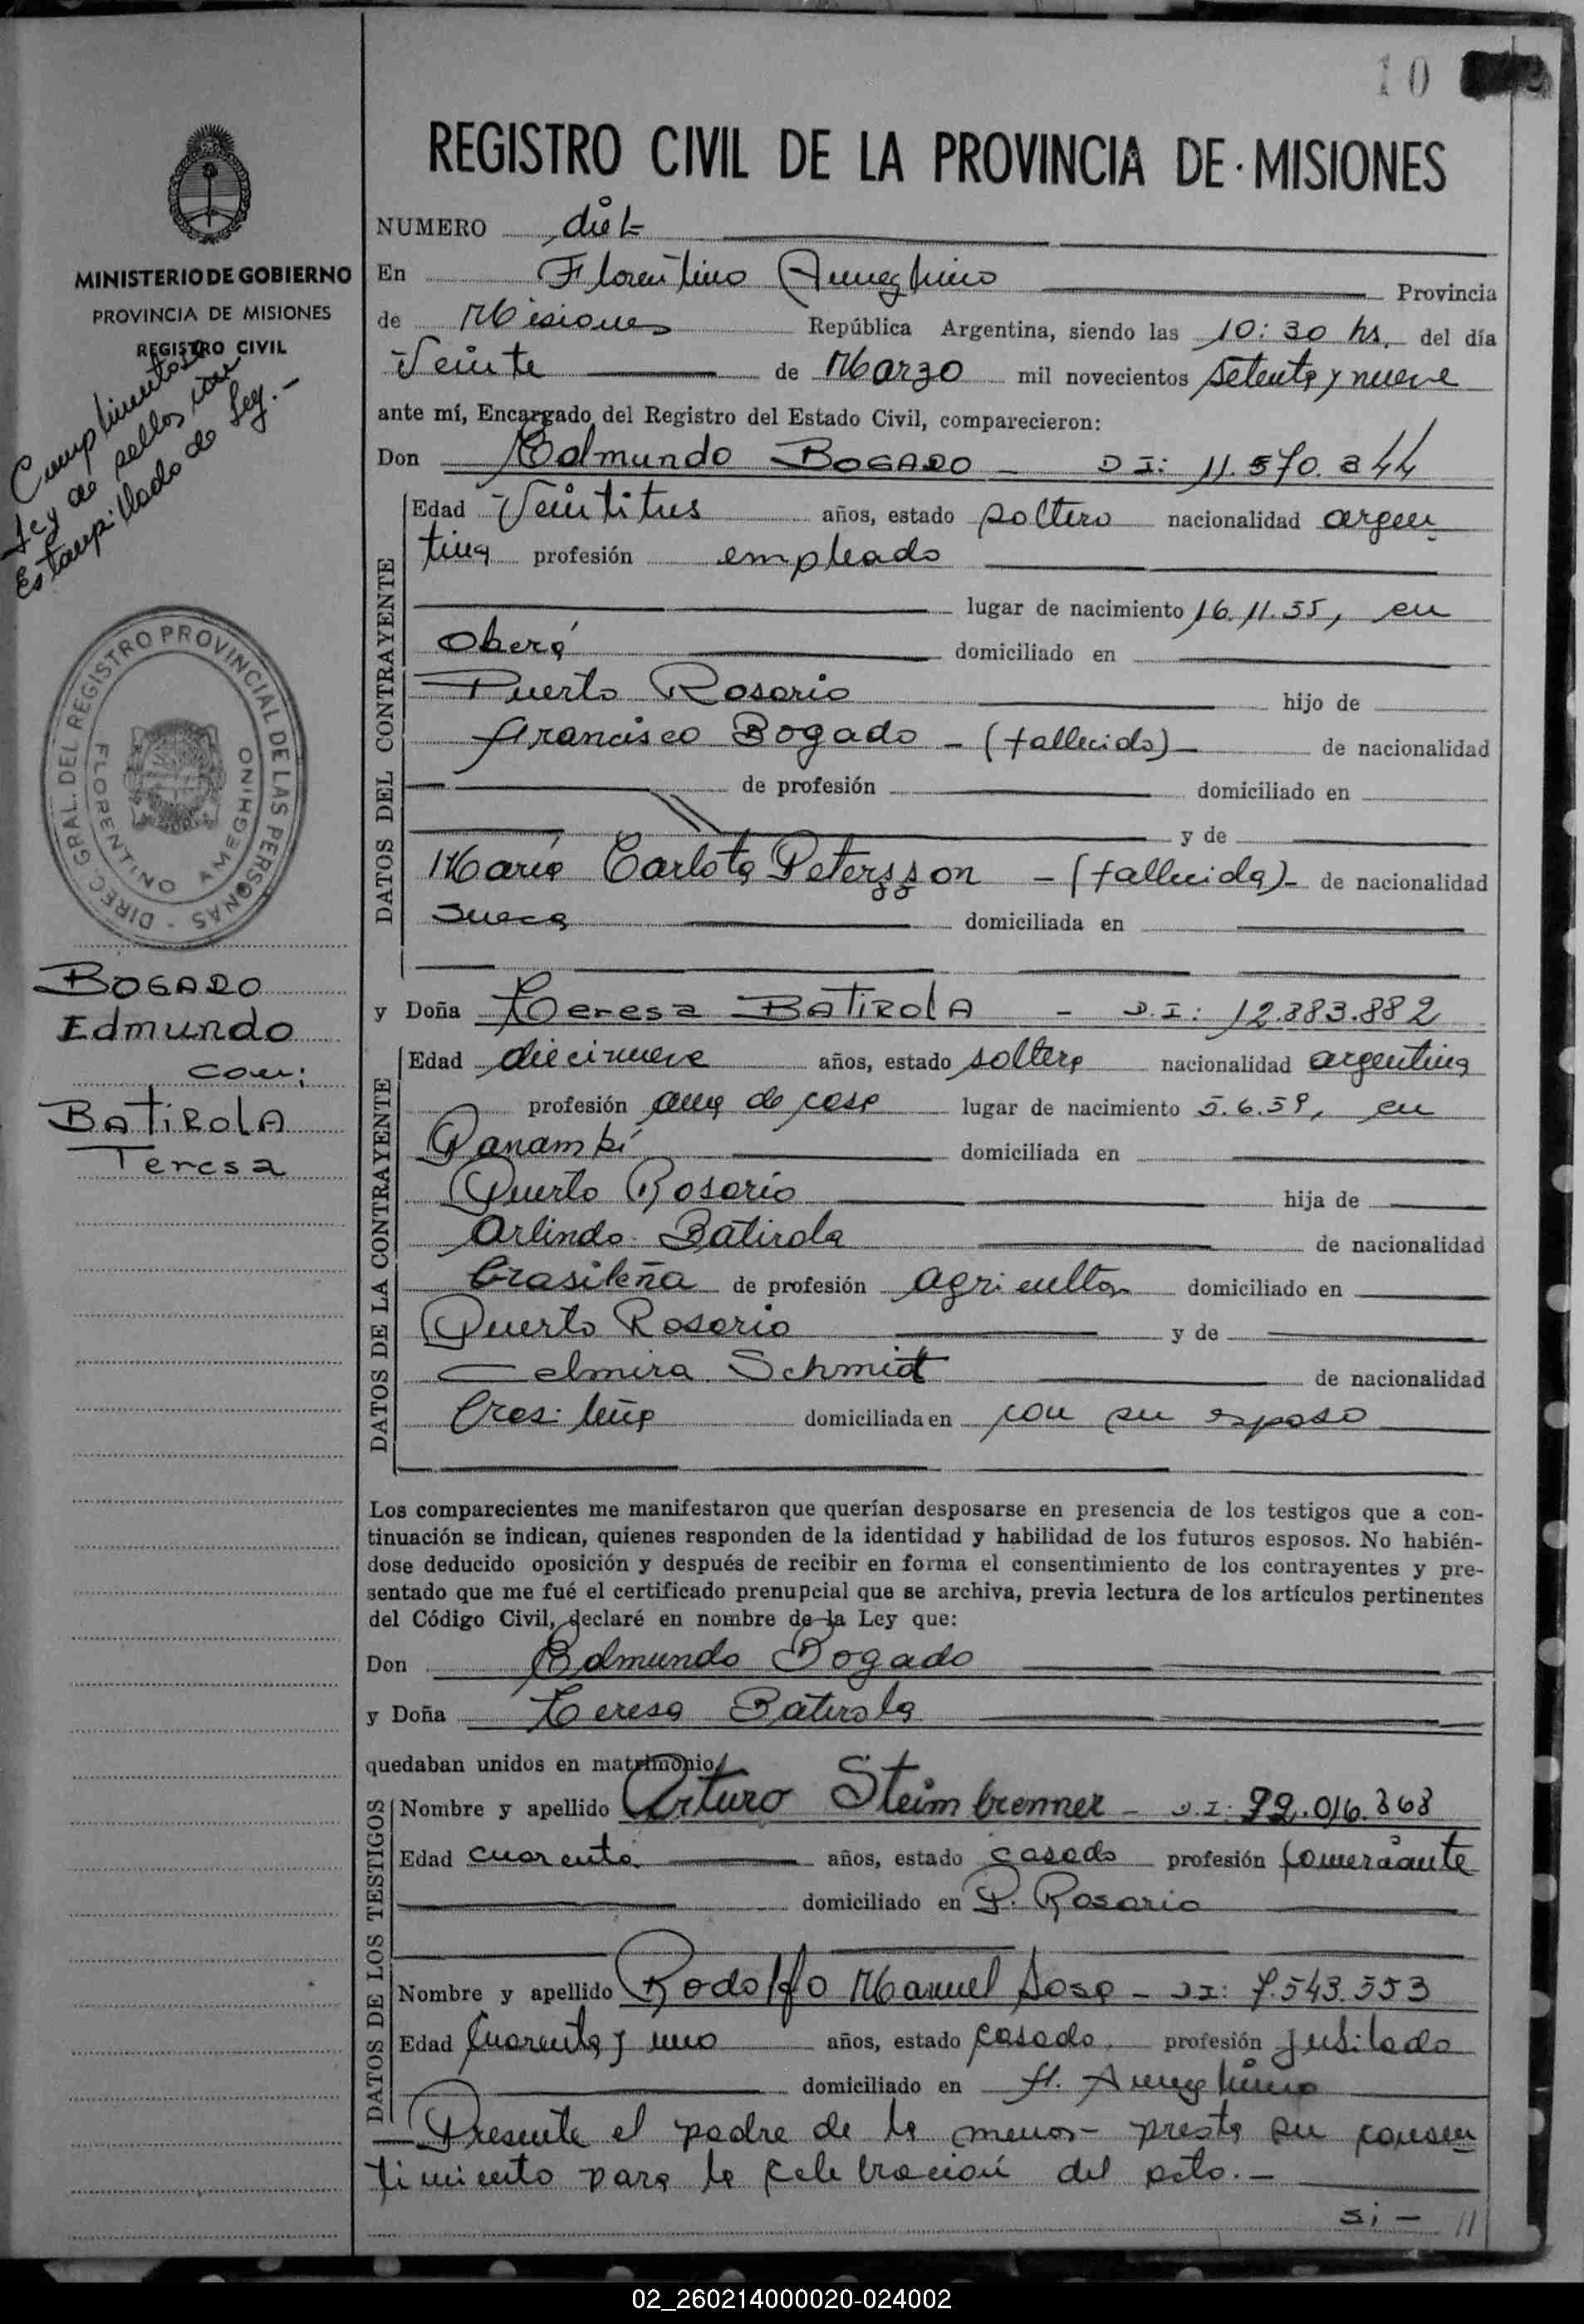 10
REGISTRO CIVIL DE LA PROVINCIA DE MISIONES
MINISTERIO DE GOBIERNO
PROVINCIA DE MISIONES
REGISTRO CIVIL
Cumplimentose
ley de sellos con
Estampillado de ley.-
DIREC. GRAL. DEL REGISTRO PROVINCIAL DE LAS PERSONAS -
FLORENTINO AMEGHINO
BOGADO
Edmundo
con:
BATIROLA
Teresa
NUMERO diez
En Florentino Ameghino Provincia
de Misiones República Argentina, siendo las 10:30 hs. del día
Veinte de Marzo mil novecientos setenta y nueve
ante mí, Encargado del Registro del Estado Civil, comparecieron:
Don Edmundo BOGADO - DI: 11.570.844
DATOS DEL CONTRAYENTE
Edad Veintitres años, estado soltero nacionalidad argen
tina profesión empleado
lugar de nacimiento 16.11.55, en
Oberá domiciliado en
Puerto Rosario hijo de
Francisco Bogado - (fallecido) - de nacionalidad
de profesión domiciliado en
y de
María Carlota Petersson - (fallecida) - de nacionalidad
sueca domiciliada en
y Doña Teresa BATIROLA - D.I: 12.883.882
DATOS DE LA CONTRAYENTE
Edad diecinueve años, estado soltera nacionalidad argentina
profesión ama de casa lugar de nacimiento 5.6.59, en
Panambí domiciliada en
Puerto Rosario hija de
Arlindo Batirola de nacionalidad
brasileña de profesión agricultor domiciliado en
Puerto Rosario y de
Celmira Schmidt de nacionalidad
brasileña domiciliada en con su esposo
Los comparecientes me manifestaron que querían desposarse en presencia de los testigos que a con-
tinuación se indican, quienes responden de la identidad y habilidad de los futuros esposos. No habién-
dose deducido oposición y después de recibir en forma el consentimiento de los contrayentes y pre-
sentado que me fué el certificado prenupcial que se archiva, previa lectura de los artículos pertinentes
del Código Civil, declaré en nombre de la Ley que:
Don Edmundo Bogado
y Doña Teresa Batirola
quedaban unidos en matrimonio
DATOS DE LOS TESTIGOS
Nombre y apellido Arturo Steimbrenner - D.I: 92.016.368
Edad cuarenta años, estado casado profesión Comerciante
domiciliado en P. Rosario
Nombre y apellido Rodolfo Manuel Sosa - DI: 7.543.553
Edad Cuarenta y uno años, estado casado. profesión jubilado
domiciliado en fl. Ameghino
Presente el padre de la menor - presta su consen
timiento para la celebracion del acto.-
si - //
02_260214000020-024002